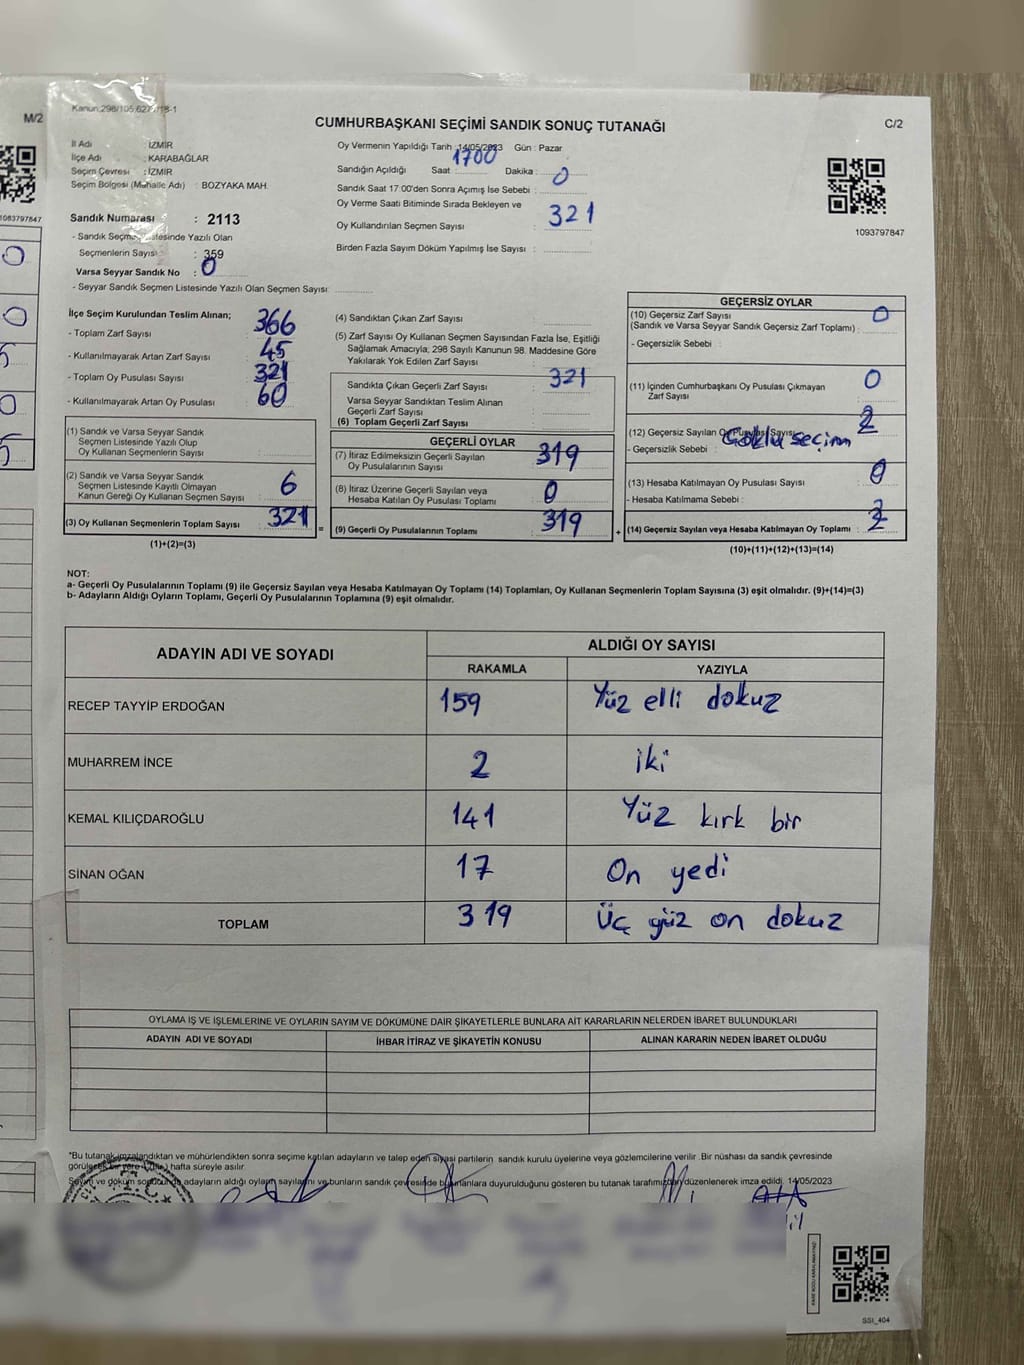 M/2
Kanun:298/105,627
-1
CUMHURBAŞKANI SEÇİMİ SANDIK SONUÇ TUTANAĞI
C/2
İl Adı : İZMİR
İlçe Adı : KARABAĞLAR
Seçim Çevresi : İZMİR
Seçim Bölgesi (Mahalle Adı) : BOZYAKA MAH.
Oy Vermenin Yapıldığı Tarih :14/05/2023 Gün : Pazar
Sandığın Açıldığı Saat : 1700 Dakika : 0
Sandık Saat 17:00'den Sonra Açımış İse Sebebi :
Oy Verme Saati Bitiminde Sırada Bekleyen ve
Oy Kullandırılan Seçmen Sayısı : 321
Birden Fazla Sayım Döküm Yapılmış İse Sayısı :
1093797847
1083797847
Sandık Numarası : 2113
- Sandık Seçmen Listesinde Yazılı Olan
Seçmenlerin Sayısı : 359
Varsa Seyyar Sandık No : 0
- Seyyar Sandık Seçmen Listesinde Yazılı Olan Seçmen Sayısı:
İlçe Seçim Kurulundan Teslim Alınan;
- Toplam Zarf Sayısı : 366
- Kullanılmayarak Artan Zarf Sayısı : 45
- Toplam Oy Pusulası Sayısı : 321
- Kullanılmayarak Artan Oy Pusulası : 60
(1) Sandık ve Varsa Seyyar Sandık
Seçmen Listesinde Yazılı Olup
Oy Kullanan Seçmenlerin Sayısı :
(2) Sandık ve Varsa Seyyar Sandık
Seçmen Listesinde Kayıtlı Olmayan
Kanun Gereği Oy Kullanan Seçmen Sayısı : 6
(3) Oy Kullanan Seçmenlerin Toplam Sayısı : 321
(1)+(2)=(3)
(4) Sandıktan Çıkan Zarf Sayısı :
(5) Zarf Sayısı Oy Kullanan Seçmen Sayısından Fazla İse, Eşitliği
Sağlamak Amacıyla; 298 Sayılı Kanunun 98. Maddesine Göre
Yakılarak Yok Edilen Zarf Sayısı :
Sandıkta Çıkan Geçerli Zarf Sayısı : 321
Varsa Seyyar Sandıktan Teslim Alınan
Geçerli Zarf Sayısı :
(6) Toplam Geçerli Zarf Sayısı :
GEÇERLİ OYLAR
(7) İtiraz Edilmeksizin Geçerli Sayılan
Oy Pusulalarının Sayısı : 319
(8) İtiraz Üzerine Geçerli Sayılan veya
Hesaba Katılan Oy Pusulası Toplamı : 0
= (9) Geçerli Oy Pusulalarının Toplamı : 319 +
GEÇERSİZ OYLAR
(10) Geçersiz Zarf Sayısı 0
(Sandık ve Varsa Seyyar Sandık Geçersiz Zarf Toplamı) :
- Geçersizlik Sebebi :
(11) İçinden Cumhurbaşkanı Oy Pusulası Çıkmayan
Zarf Sayısı : 0
(12) Geçersiz Sayılan Oy Pusulası Sayısı : 2
- Geçersizlik Sebebi : Çoklu seçim
(13) Hesaba Katılmayan Oy Pusulası Sayısı : 0
- Hesaba Katılmama Sebebi :
(14) Geçersiz Sayılan veya Hesaba Katılmayan Oy Toplamı : 2
(10)+(11)+(12)+(13)=(14)
NOT:
a- Geçerli Oy Pusulalarının Toplamı (9) ile Geçersiz Sayılan veya Hesaba Katılmayan Oy Toplamı (14) Toplamları, Oy Kullanan Seçmenlerin Toplam Sayısına (3) eşit olmalıdır. (9)+(14)=(3)
b- Adayların Aldığı Oyların Toplamı, Geçerli Oy Pusulalarının Toplamına (9) eşit olmalıdır.
ADAYIN ADI VE SOYADI
ALDIĞI OY SAYISI
RAKAMLA YAZIYLA
RECEP TAYYİP ERDOĞAN 159 Yüz elli dokuz
MUHARREM İNCE 2 iki
KEMAL KILIÇDAROĞLU 141 Yüz kırk bir
SİNAN OĞAN 17 On yedi
TOPLAM 319 Üç yüz on dokuz
OYLAMA İŞ VE İŞLEMLERİNE VE OYLARIN SAYIM VE DÖKÜMÜNE DAİR ŞİKAYETLERLE BUNLARA AİT KARARLARIN NELERDEN İBARET BULUNDUKLARI
ADAYIN ADI VE SOYADI İHBAR İTİRAZ VE ŞİKAYETİN KONUSU ALINAN KARARIN NEDEN İBARET OLDUĞU
*Bu tutanak imzalandıktan ve mühürlendikten sonra seçime katılan adayların ve talep eden siyasi partilerin sandık kurulu üyelerine veya gözlemcilerine verilir .Bir nüshası da sandık çevresinde
görülecek bir yere 1(bir) hafta süreyle asılır.
Sayım ve döküm sonucunda adayların aldığı oyların sayılarını ve bunların sandık çevresinde bulunanlara duyurulduğunu gösteren bu tutanak tarafımızdan düzenlenerek imza edildi. 14/05/2023
SSI_404